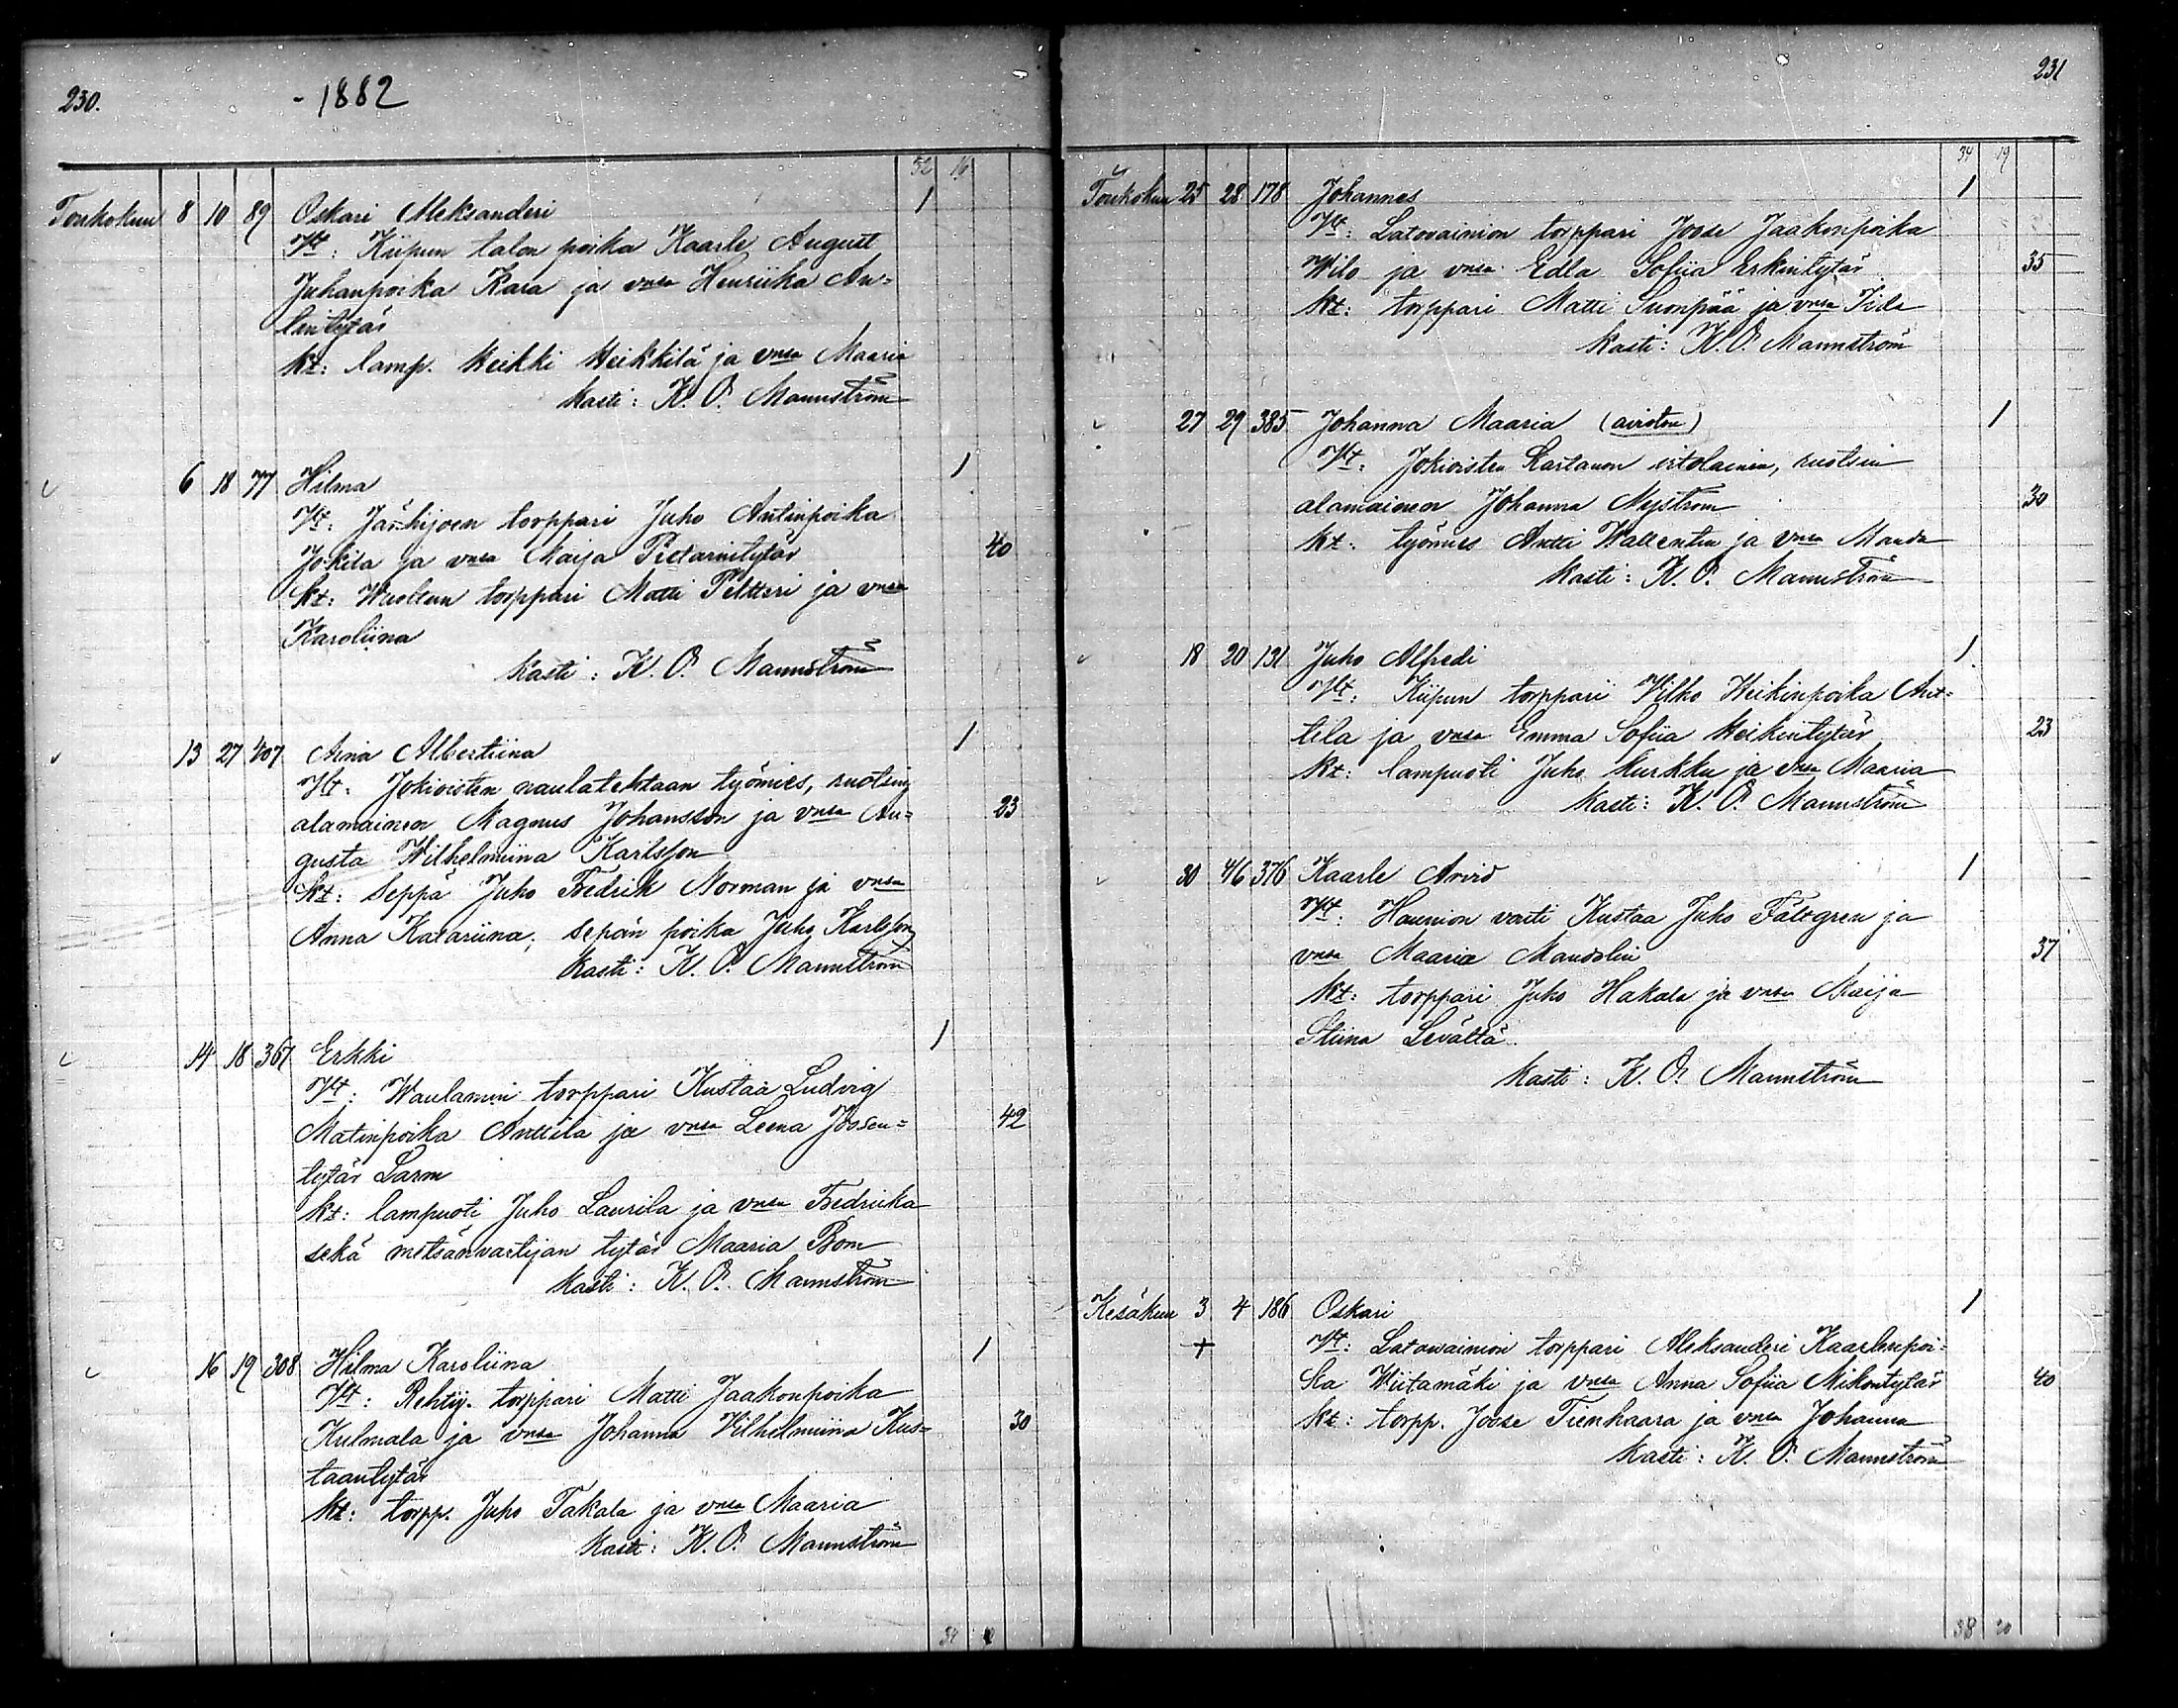 230. - 1882
52 16
Toukokuu 8 10 89 Oskari Aleksanderi 1
Vt: Kiipun talon poika Kaarle August
Juhanpoika Kara ja vmsa Henriika An=
tintytär
Kt: lamp. Heikki Heikkilä ja vmsa Maaria
Kasti: K. O. Mannström
6 18 77 Hilma 1
Vt: Järhijoen torppari Juho Antinpoika
Jokila ja vmsa Maija Pietarintytär 40
Kt: Wuoltun torppari Matti Peltteri ja vmsa
Karoliina
Kasti: K. O. Mannström
13 27 407 Aina Albertiina 1
Vt: Jokioisten naulatehtaan työmies, ruotsin
alamainen Magnus Johansson ja vmsa Au= 23
gusta Wilhelmiina Karlsson
Kt: Seppä Juho Fredrik Norman ja vmsa
Anna Katariina; sepän poika Juho Karlsson
Kasti: K. O. Mannström
14 18 367 Erkki 1
Vt: Waulammi torppari Kustaa Ludvig
Matinpoika Anttila ja vmsa Leena Joosen= 42
tytär Sarm
Kt: lampuoti Juho Laurila ja vmsa Fredriika
sekä metsänvartijan tytär Maaria Bom
Kasti: K. O. Mannström
16 19 308 Hilma Karoliina 1
Vt: Rehtij. torppari Matti Jaakonpoika
Kulmala ja vmsa Johanna Vilhelmiina Kus= 30
taantytär
Kt: torpp. Juho Takala ja vmsa Maaria
Kasti: K. O. Mannström
34
231
34 19
Toukokuu 25 28 178 Johannes 1
Vt: Latovainion torppari Joose Jaakonpoika
Wilo ja vmsa Edla Sofiia Erkintytär 35
Kt: torppari Matti Suonpää ja vmsa Iida
Kasti: K. O. Mannström
27 29 385 Johanna Maaria (avioton) 1
Vt: Jokioisten Kartanon irtolainen, ruotsin
alamainen Johanna Nyström 30
Kt: työmies Antti Wallentin ja vmsa Manda
Kasti: K. O. Mannström
18 20 131 Juho Alfredi 1
Vt: Kiipun torppari Vilho Heikinpoika Ant=
tila ja vmsa Emma Sofiia Heikintytär 23
Kt: lampuoti Juho Kurkku ja vmsa Maaria
Kasti: K. O. Mannström
30 46 376 Kaarle Arvid 1
Vt: Haunion vasti Kustaa Juho Fältgren ja
vmsa Maaria Mandolin 37
Kt: torppari Juho Hakala ja vmsa Maija
Stiina Levältä
Kasti: K. O. Mannström
Kesäkuu 3 4 186 Oskari 1
+ Vt: Latovainion torppari Aleksanderi Kaarlenpoi=
ka Wiitamäki ja vmsa Anna Sofiia Mikontytär 40
Kt: torpp. Joose Tienhaara ja vmsa Johanna
Kasti: K. O. Mannström
38 20